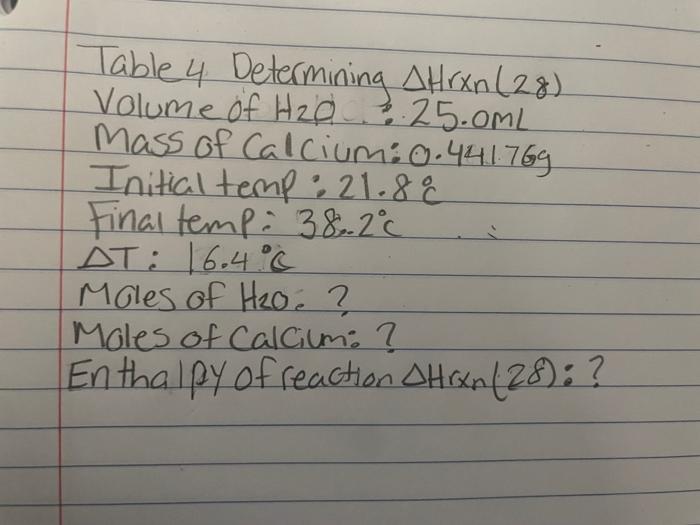 Table 4 Determining ΔHrxn(28)
Volume of H2O : 25.0mL
Mass of Calcium: 0.44176g
Initial temp : 21.8°C
Final temp: 38.2°C
ΔT: 16.4°C
Moles of H2O: ?
Moles of Calcium: ?
Enthalpy of reaction ΔHrxn(28): ?